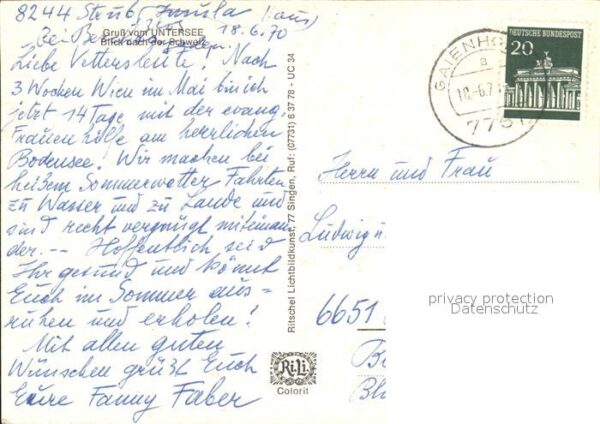 8244
18.6.70
Gruß vom UNTERSEE
Blick nach der Schweiz
Liebe Vettersleute! Nach
3 Wochen Wien im Mai bin ich
jetzt 14 Tage mit der evang.
Frauenhilfe am herrlichen
Bodensee! Wir machen bei
heißem Sommerwetter Fahrten
zu Wasser und zu Lande und
sind recht vergnügt miteinan-
der. -- Hoffentlich seid
Ihr gesund und könnt
Euch im Sommer aus-
ruhen und erholen!
Mit allen guten
Wünschen grüßt Euch
Eure Fanny Faber
Ritschel Lichtbildkunst, 77 Singen, Ruf: (07731) 6 37 78 - UC 34
RiLi
Colorit
DEUTSCHE BUNDESPOST
20
GAIENHO
a
7751
Herrn und Frau
Ludwig u.
6651
privacy protection
Datenschutz